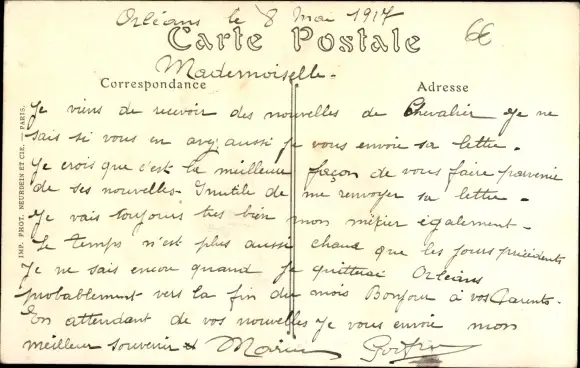 Orléans le 8 Mai 1917
6€
Carte Postale
Mademoiselle.
Correspondance
Adresse
Je viens de recevoir des nouvelles de Chevalier Je ne
sais si vous en avez aussi je vous envoie sa lettre.
Je crois que c'est la meilleure façon de vous faire parvenir
de ses nouvelles. Inutile de me renvoyer sa lettre.
Je vais toujours très bien mon métier également.
Le temps n'est plus aussi chaud que les jours précédents
Je ne sais encore quand je quitterai Orléans
probablement vers la fin du mois Bonjour à vos Parents.
En attendant de vos nouvelles Je vous envoie mon
meilleur souvenir
IMP. PHOT. NEURDEIN ET CIE. — PARIS.